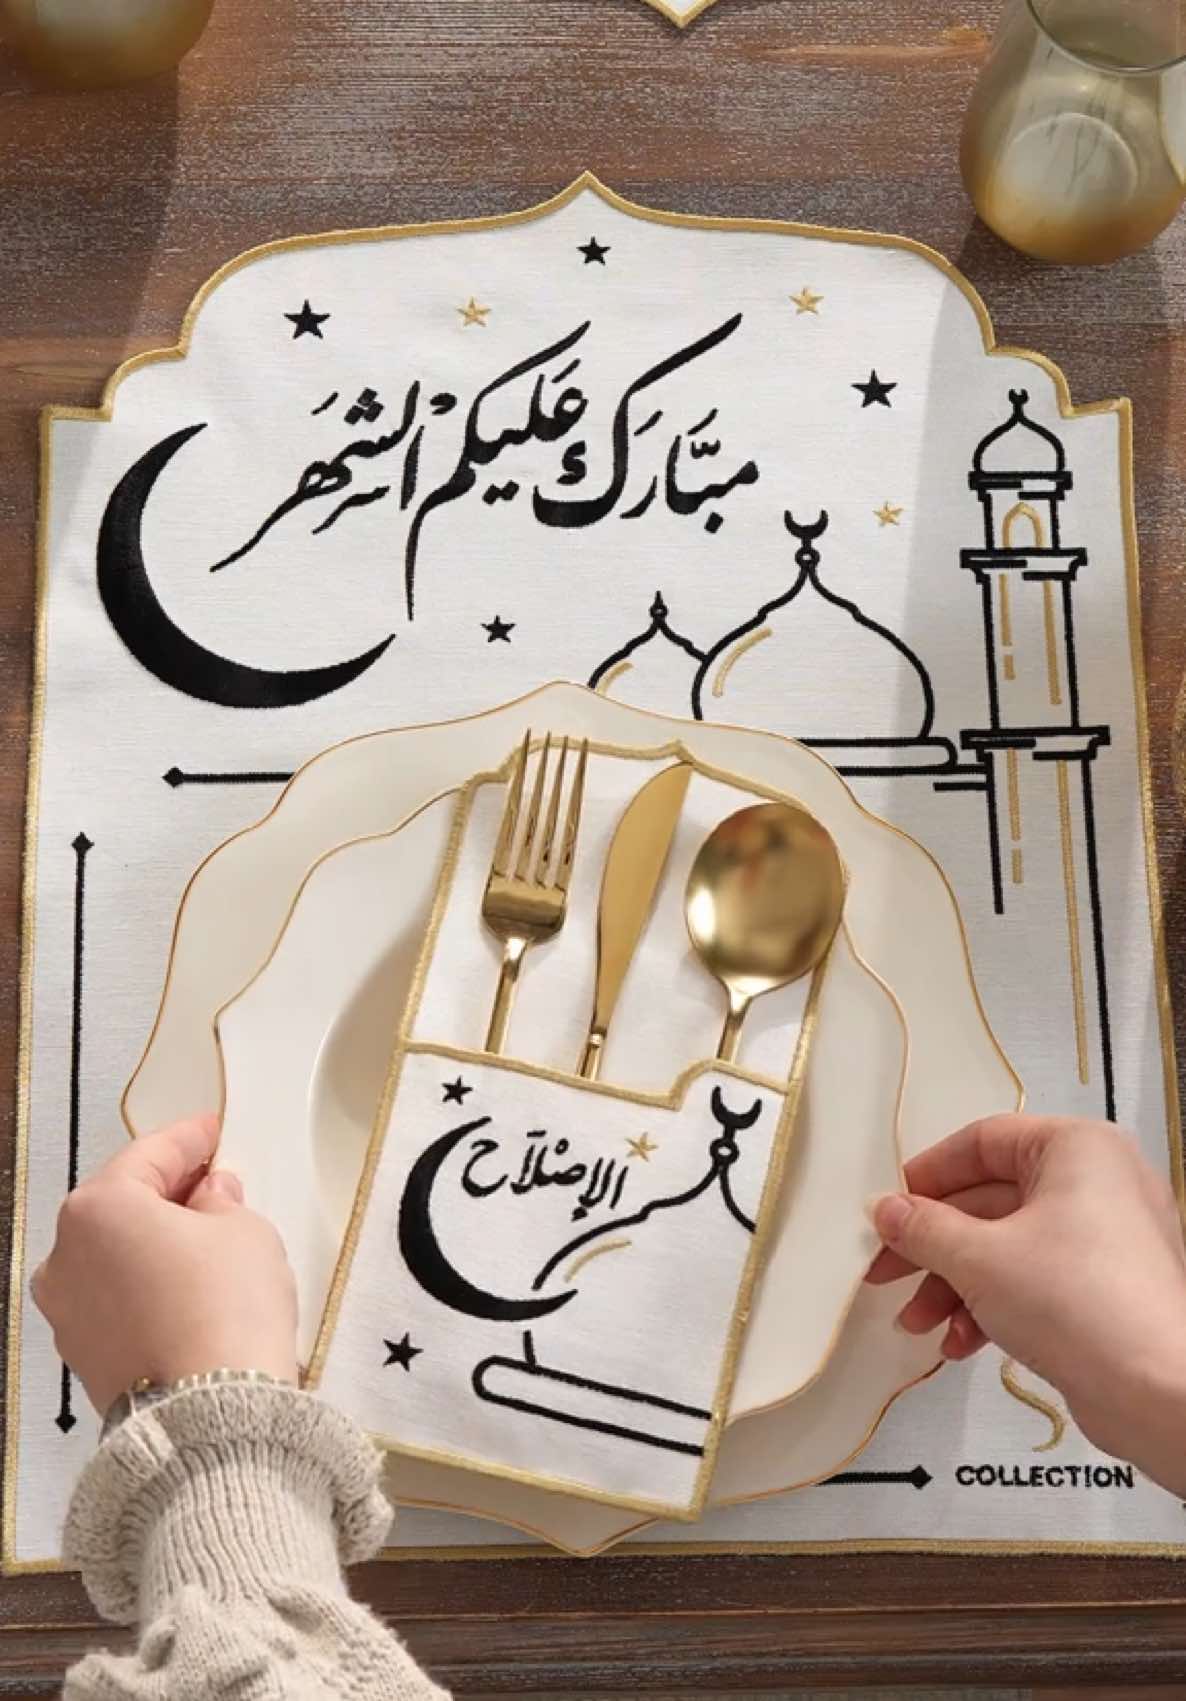 مبَّارَك عَليكمْ الشهَر
الإصْلَاح
COLLECTION